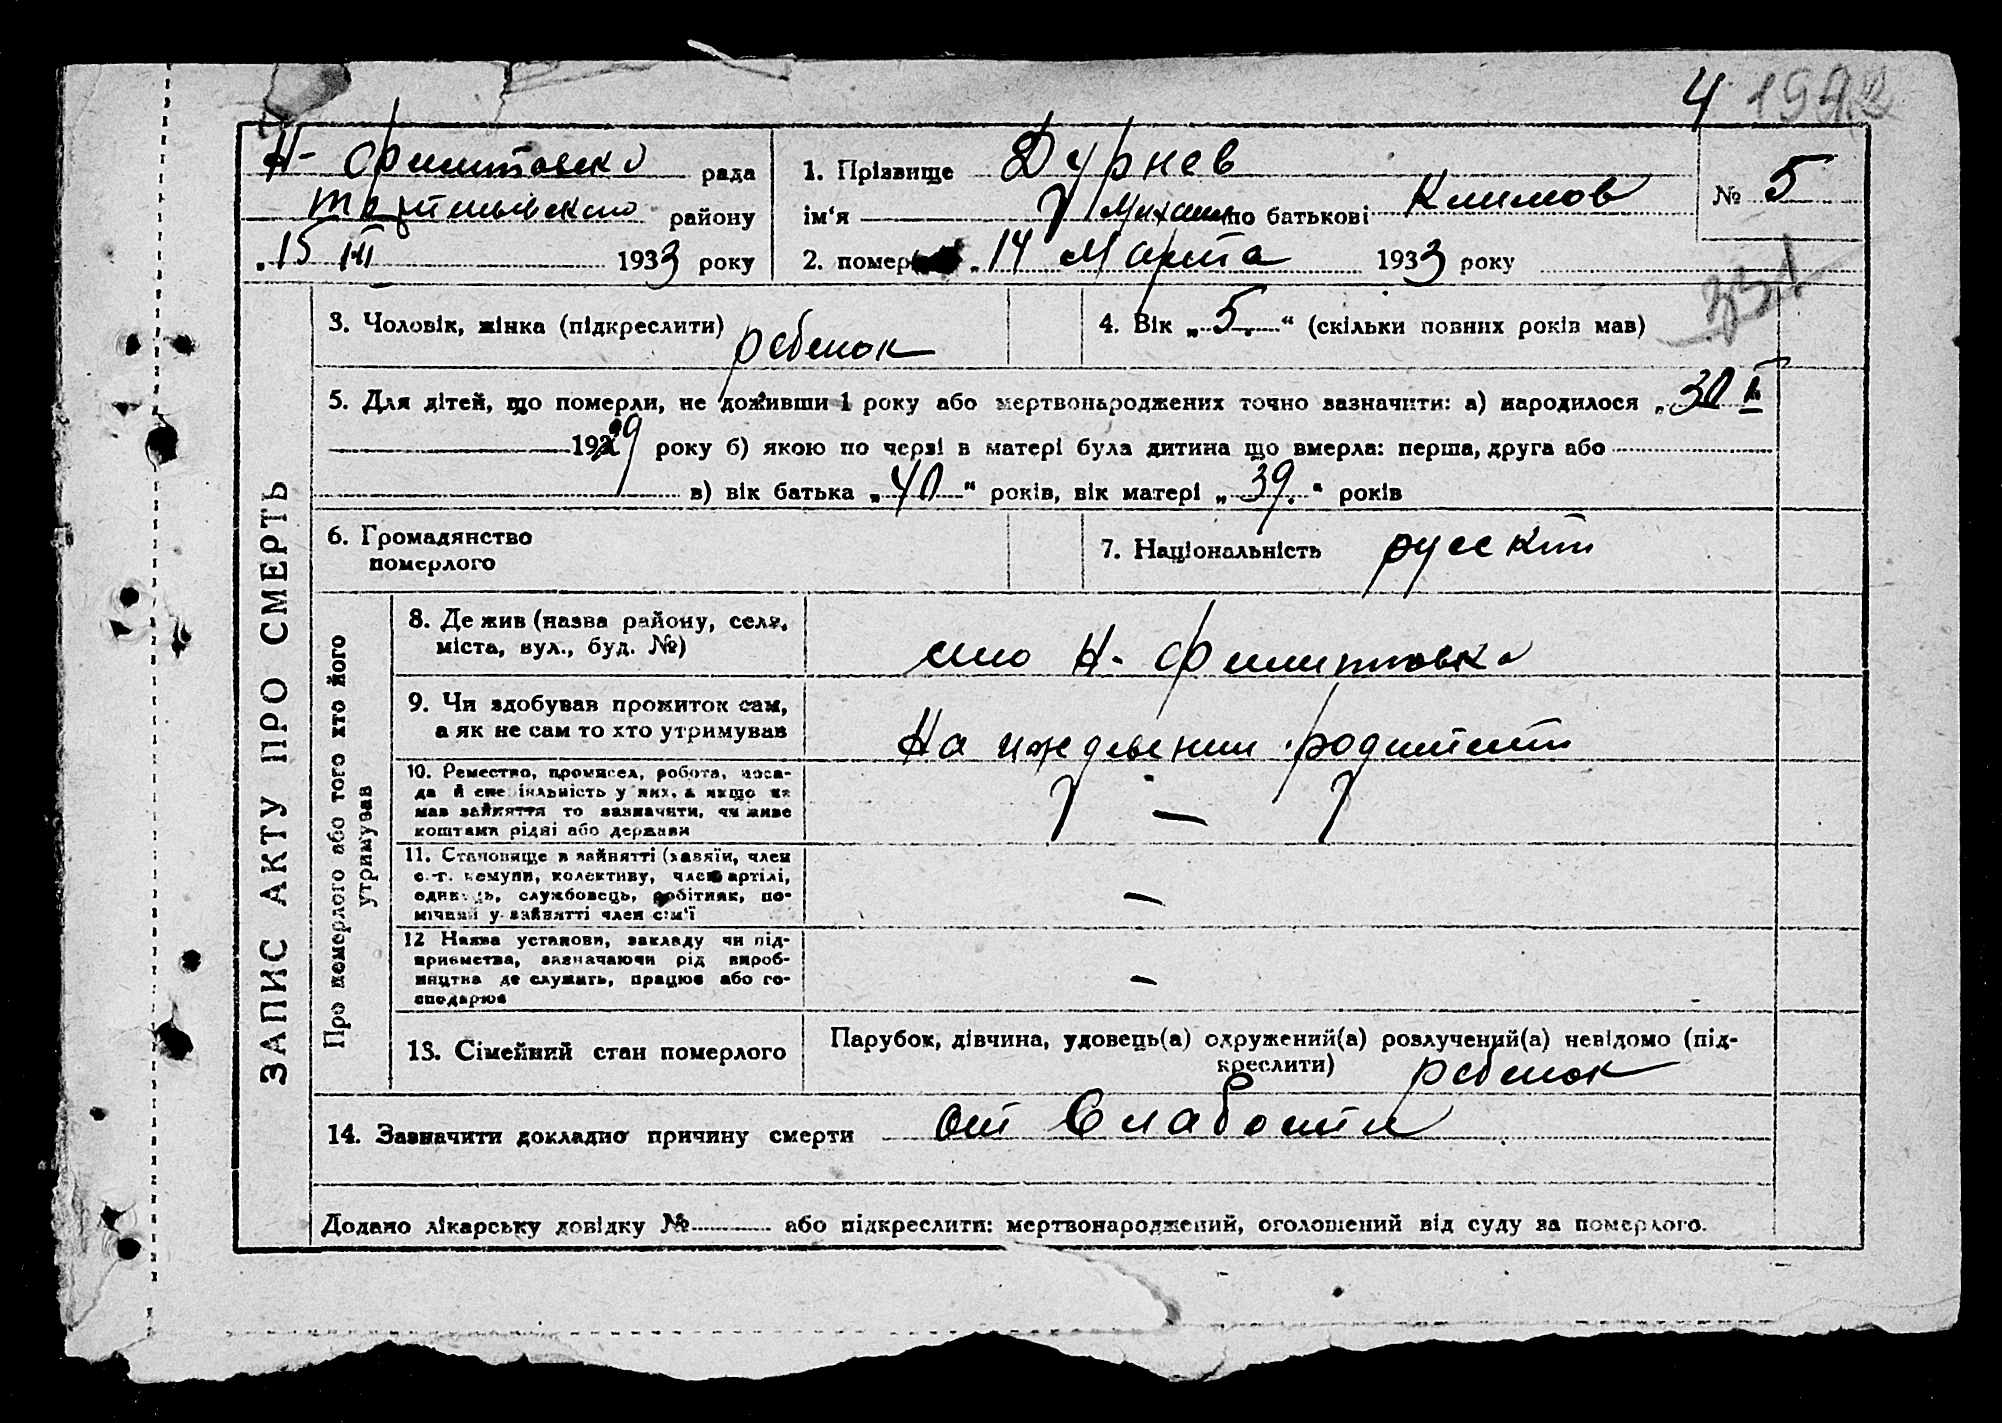 4 1942
Н- Филиповска рада
району
„15 III 1933 року
1. Прізвище Дурнев
ім'я Михаил по батькові Климов
№ 5
2. помер „14 Марта 1933 року
3. Чоловік, жінка (підкреслити) ребенок
4. Вік „5“ (скільки повних років мав)
5. Для дітей, що померли, не доживши 1 року або мертвонароджених точно зазначити: а) народилося „30
1929 року б) якою по черзі в матері була дитина що вмерла: перша, друга або
в) вік батька „40“ років, вік матері „39.“ років
6. Громадянство
померлого
7. Національність русский
ЗАПИС АКТУ ПРО СМЕРТЬ
Про померлого або того хто його
утримував
8. Де жив (назва району, села,
міста, вул., буд. №)
село Н- Филиповка
9. Чи здобував прожиток сам,
а як не сам то хто утримував
На иждевении родители
10. Ремество, промисел, робота, поса-
да й спеціяльність у них, а якщо не
мав зайняття то зазначити, чи живе
коштами рідні або держави
—
11. Становище в зайнятті (хазяїн, член
с.-г. комуни, колективу, член артілі,
одинець, службовець, робітник, по-
мічний у зайнятті член сім'ї
—
12 Назва установи, закладу чи під-
приємства, зазначаючи рід вироб-
ництва де служить, працює або го-
сподарює
—
13. Сімейний стан померлого
Парубок, дівчина, удовець(а) одружений(а) розлучений(а) невідомо (під-
креслити) ребенок
14. Зазначити докладно причину смерти от Слабости
Додано лікарську довідку № або підкреслити: мертвонароджений, оголошений від суду за померлого.